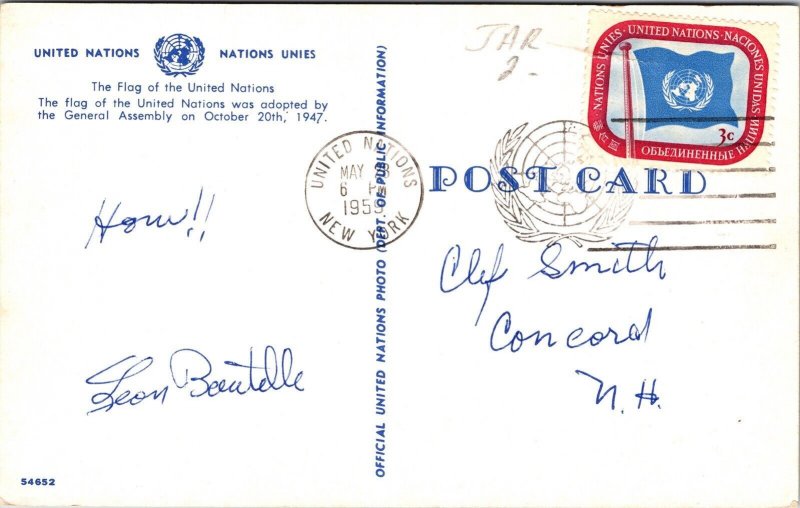 UNITED NATIONS NATIONS UNIES
The Flag of the United Nations
The flag of the United Nations was adopted by
the General Assembly on October 20th, 1947.
How!!
Leon Boutelle
54652
OFFICIAL UNITED NATIONS PHOTO (DEPT. OF PUBLIC INFORMATION)
UNITED NATIONS
MAY
6 PM
1959
NEW YORK
JAR
2-
NATIONS UNIES · UNITED NATIONS · NACIONES UNIDAS
ОБЪЕДИНЕННЫЕ НАЦИИ
3c
POST CARD
Clef Smith
Concord
N.H.